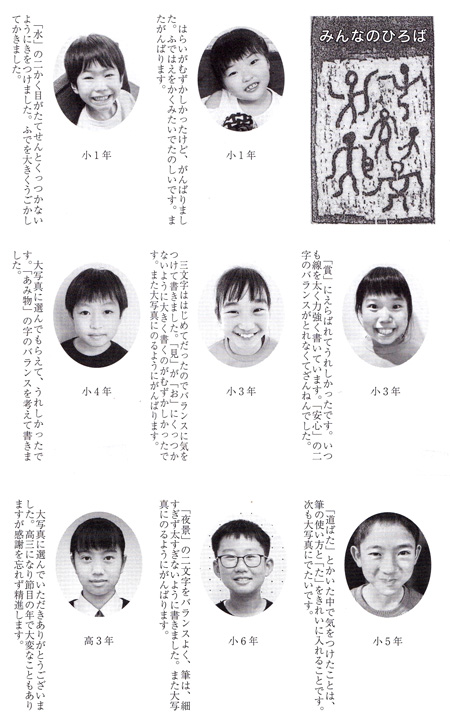 みんなのひろば
はらいがむずかしかったけど、がんばりまし
た。ふではえをかくみたいでたのしいです。ま
たがんばります。
小1年
「水」の二かく目がたてせんとくっつかない
ようにきをつけました。ふでを大きくうごかし
てかきました。
小1年
「賞」にえらばれてうれしかったです。いつ
も線を太く力強く書いています。「安心」の二
字のバランスがとれなくてざんねんでした。
小3年
三文字ははじめてだったのでバランスに気を
つけて書きました。「見」が「お」にくっつか
ないように大きく書くのがむずかしかったで
す。また大写真にのるようにがんばります。
小3年
大写真に選んでもらえて、うれしかったで
す。「あみ物」の字のバランスを考えて書きま
した。
小4年
「道ばた」とかいた中で気をつけたことは、
筆の使い方と「た」をきれいに入れることです。
次も大写真にでたいです。
小5年
「夜景」の二文字をバランスよく、筆は、細
すぎず太すぎないように書きました。また大写
真にのるようにがんばります。
小6年
大写真に選んでいただきありがとうございま
した。高三になり節目の年で大変なこともあり
ますが感謝を忘れず精進します。
高3年